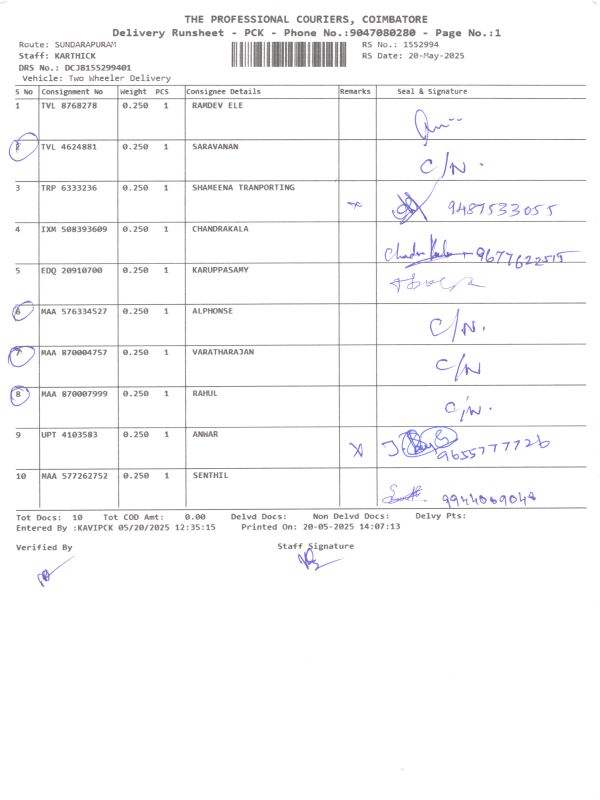 THE PROFESSIONAL COURIERS, COIMBATORE
Delivery Runsheet - PCK - Phone No.:9047080280 - Page No.:1
Route: SUNDARAPURAM RS No.: 1552994
Staff: KARTHICK RS Date: 20-May-2025
DRS No.: DCJB155299401
Vehicle: Two Wheeler Delivery
S No Consignment No Weight PCS Consignee Details Remarks Seal & Signature
1 TVL 8768278 0.250 1 RAMDEV ELE
2 TVL 4624881 0.250 1 SARAVANAN C/N.
3 TRP 6333236 0.250 1 SHAMEENA TRANPORTING x 9487533055
4 IXM 508393609 0.250 1 CHANDRAKALA 9677622515
5 EDQ 20910700 0.250 1 KARUPPASAMY
6 MAA 576334527 0.250 1 ALPHONSE C/N.
7 MAA 870004757 0.250 1 VARATHARAJAN C/N
8 MAA 870007999 0.250 1 RAHUL C/N.
9 UPT 4103583 0.250 1 ANWAR x 9655777726
10 MAA 577262752 0.250 1 SENTHIL 9944069048
Tot Docs: 10 Tot COD Amt: 0.00 Delvd Docs: Non Delvd Docs: Delvy Pts:
Entered By :KAVIPCK 05/20/2025 12:35:15 Printed On: 20-05-2025 14:07:13
Verified By Staff Signature